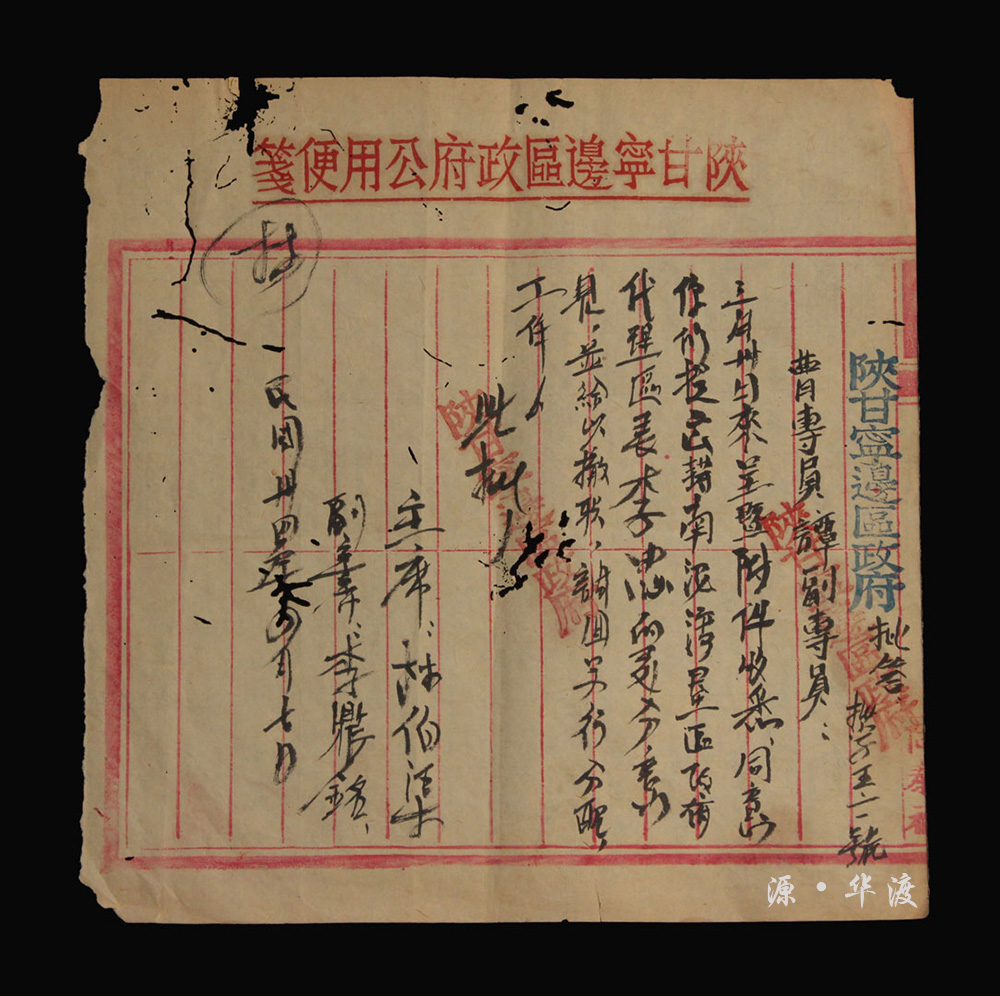 陝甘寧邊區政府公用便箋
陝甘寧邊區政府批答 批字五一號
曹專員 譚副專員：
三月卅日來呈暨附件收悉。同意
你們 南泥灣墾區政府
代理區長 分意
見，並給以撤職，調回另行分配
工作。
此批
主席：林伯渠
副主席：李鼎銘
民國卅四年四月七日
源·华渡